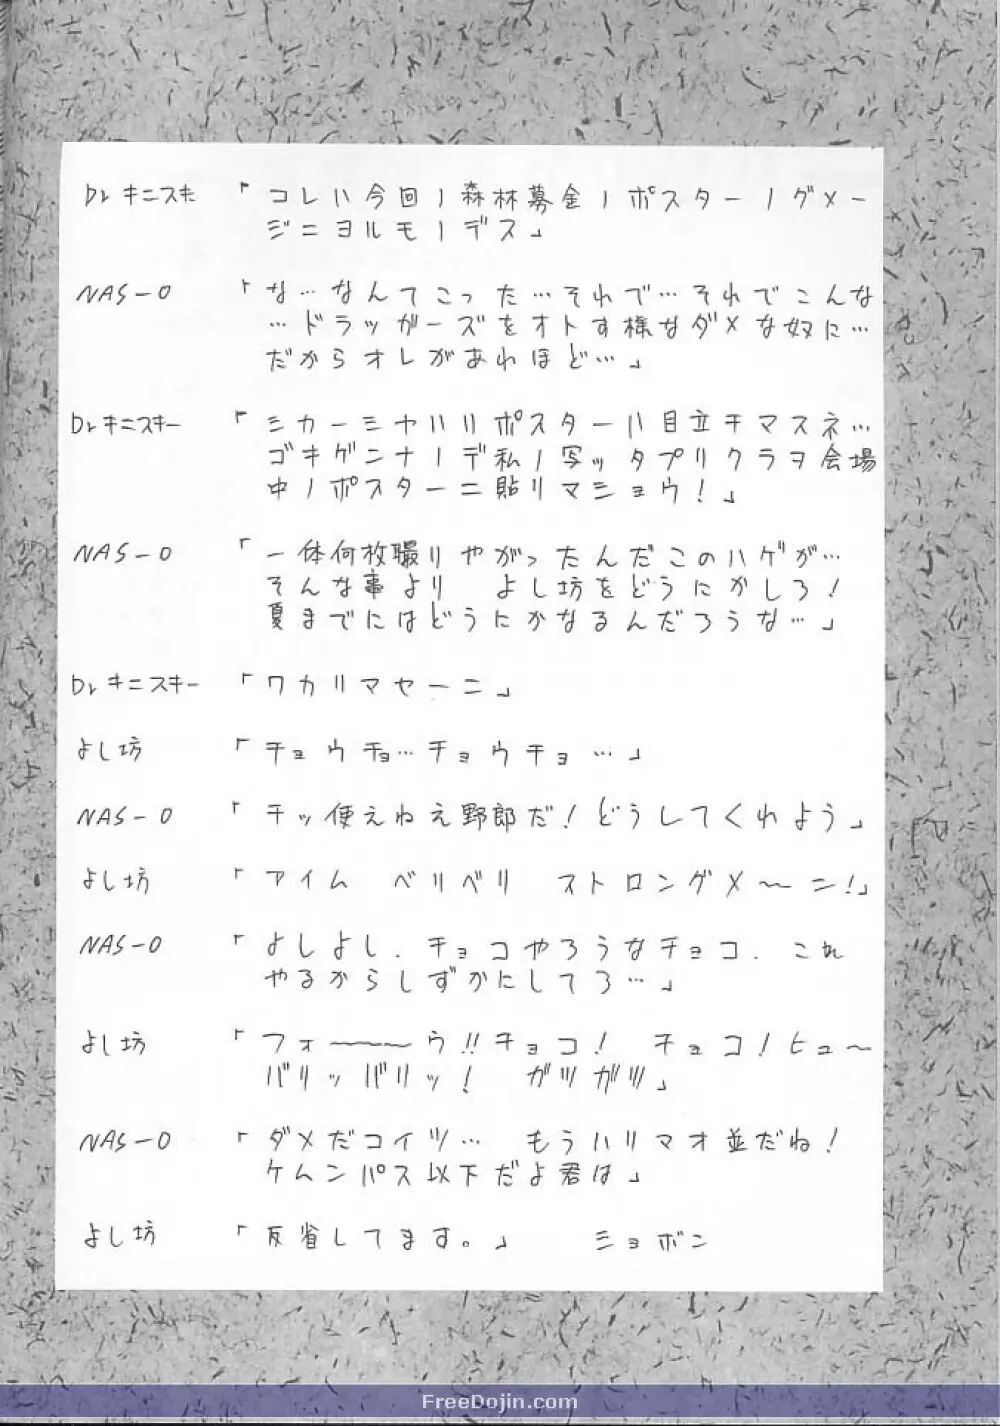 Dr キニスキー 「コレハ今回ノ森林募金ノポスターノダメー
ジニヨルモノデス」
NAS-O 「な…なんてこった…それで…それでこんな
…ドラッガーズをオトす様なダメな奴に…
だからオレがあれほど…」
Dr キニスキー 「シカーミヤハリポスターハ目立チマスネ…
ゴキゲンナノデ私ノ写ッタプリクラヲ会場
中ノポスターニ貼リマショウ!」
NAS-O 「一体何枚撮りやがったんだこのハゲが…
そんな事より よし坊をどうにかしろ!
夏までにはどうにかなるんだろうな…」
Dr キニスキー 「ワカリマセーニ」
よし坊 「チョウチョ…チョウチョ…」
NAS-O 「チッ使えねえ野郎だ!どうしてくれよう」
よし坊 「アイム ベリベリ ストロングメ〜ン!」
NAS-O 「よしよし.チョコやろうなチョコ.これ
やるからしずかにしてろ…」
よし坊 「フォ〜〜〜〜ウ!!チョコ! チョコ!ヒュ〜
バリッバリッ! ガツガツ」
NAS-O 「ダメだコイツ… もうハリマオ並だね!
ケムンパス以下だよ君は」
よし坊 「反省してます。」 ショボン
FreeDojin.com